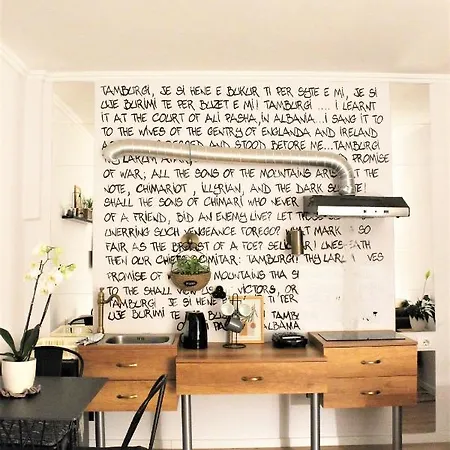 TAMBURGI, JE SI HENE E BUKUR TI PER SYTE E MI, JE SI
UJE BURIMI TE PER BUZET E MI! TAMBURGI .... I LEARNT
IT AT THE COURT OF ALI PASHA, IN ALBANIA... I SANG IT TO
TO THE WIVES OF THE GENTRY OF ENGLANDA AND IRELAND
AND STOOD BEFORE ME... TAMBURGI
THY LARUM PROMISE
OF WAR; ALL THE SONS OF THE MOUNTAINS AT THE
NOTE, CHIMARIOT, ILLYRIAN, AND THE DARK
SHALL THE SONS OF CHIMARI WHO NEVER
OF A FRIEND, BID AN ENEMY LIVE? LET THOSE
UNERRING SUCH VENGEANCE FOREGO? WHAT MARK SO
FAIR AS THE OF A FOE?
THEN OUR CHIEF TAMBURGI! THY
PROMISE OF MOUNTAINS THA SI
TO THE SHALL VIEW US VICTORS, OR
TAMBURGI, JE SI HENE E TI PER
UJE BURIMI TE PER BUZET E MI
ALBANIA